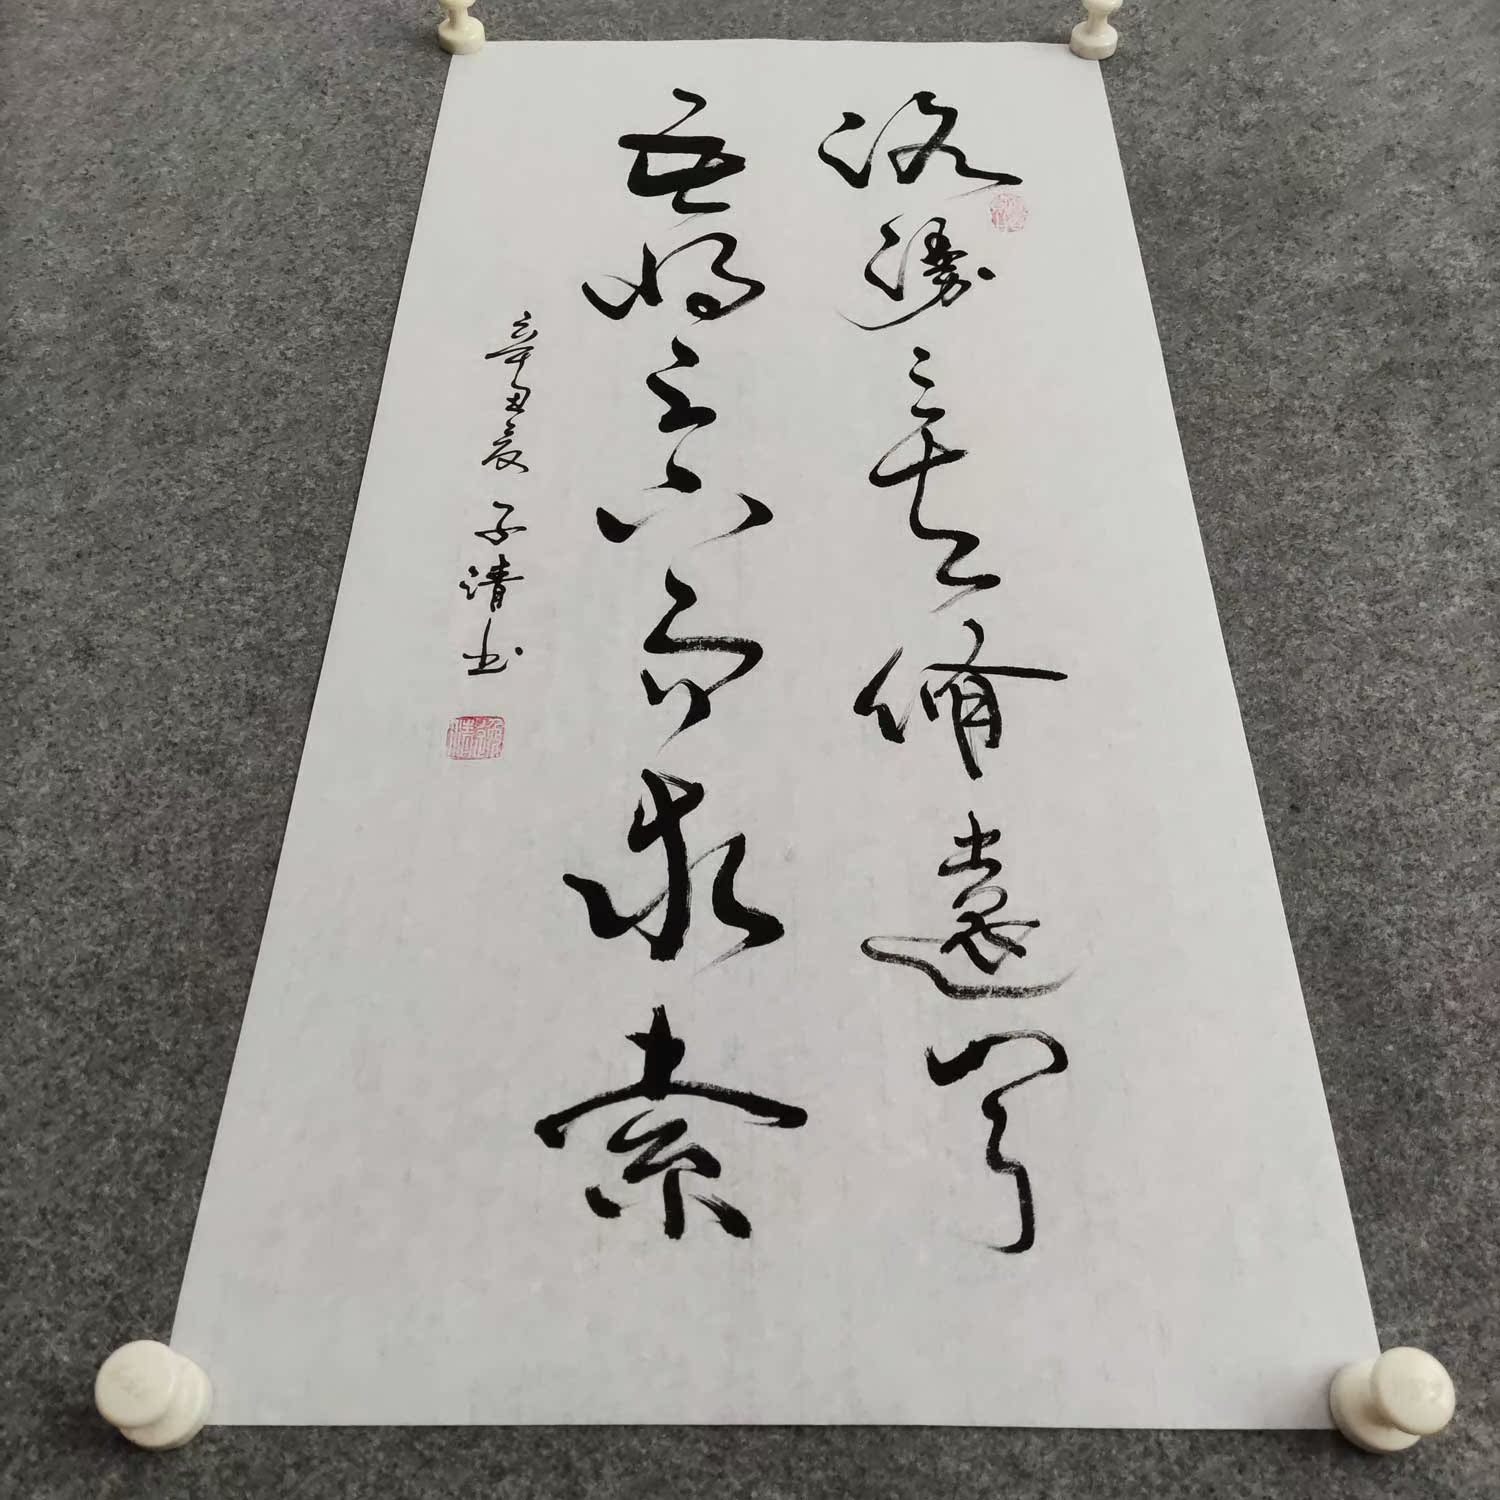 路漫漫其修遠兮
吾將上下而求索
辛丑夏 子清书